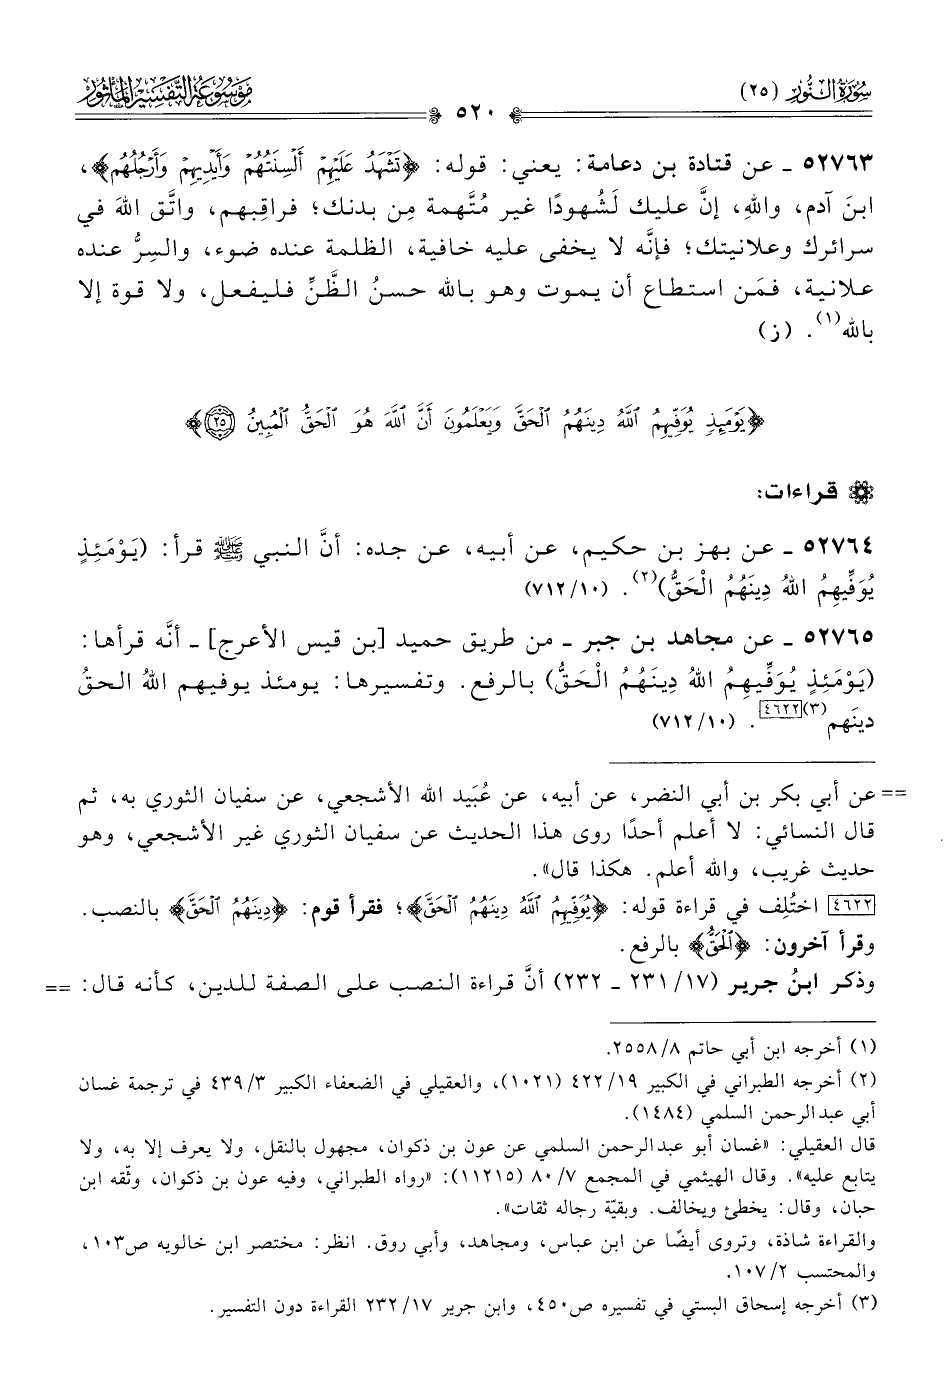 سُورَةُ النُّورِ (٢٥)
٥٢٠
مَوْسُوعَةُ التَّفْسِيرِ المَأْثُورِ
٥٢٧٦٣ ـ عن قتادة بن دعامة: يعني: قوله: ﴿تَشْهَدُ عَلَيْهِمْ أَلْسِنَتُهُمْ وَأَيْدِيهِمْ وَأَرْجُلُهُم﴾،
ابنَ آدم، واللهِ، إنَّ عليك لَشُهودًا غير مُتَّهمة مِن بدنك؛ فراقِبهم، واتَّق اللهَ في
سرائرك وعلانيتك؛ فإنَّه لا يخفى عليه خافية، الظلمة عنده ضوء، والسِرُّ عنده
علانية، فمَن استطاع أن يموت وهو بالله حسنُ الظَّنِّ فليفعل، ولا قوة إلا
بالله(١). (ز)
﴿يَوْمَئِذٍ يُوَفِّيهِمُ ٱللَّهُ دِينَهُمُ ٱلْحَقَّ وَيَعْلَمُونَ أَنَّ ٱللَّهَ هُوَ ٱلْحَقُّ ٱلْمُبِينُ ٢٥﴾
قراءات:
٥٢٧٦٤ ـ عن بهز بن حكيم، عن أبيه، عن جده: أنَّ النبي ﷺ قرأ: (يَوْمَئِذٍ
يُوَفِّيهِمُ اللهُ دِينَهُمُ الْحَقُّ)(٢). (٧١٢/١٠)
٥٢٧٦٥ ـ عن مجاهد بن جبر ـ من طريق حميد [بن قيس الأعرج] ـ أنَّه قرأها:
(يَوْمَئِذٍ يُوَفِّيهِمُ اللهُ دِينَهُمُ الْحَقُّ) بالرفع. وتفسيرها: يومئذ يوفيهم اللهُ الحقُ
دينَهم(٣)[٤٦٢٢]. (٧١٢/١٠)
== عن أبي بكر بن أبي النضر، عن أبيه، عن عُبَيد الله الأشجعي، عن سفيان الثوري به، ثم
قال النسائي: لا أعلم أحدًا روى هذا الحديث عن سفيان الثوري غير الأشجعي، وهو
حديث غريب، والله أعلم. هكذا قال».
[٤٦٢٢] اختُلِف في قراءة قوله: ﴿يُوَفِّيهِمُ ٱللَّهُ دِينَهُمُ ٱلْحَقَّ﴾؛ فقرأ قوم: ﴿دِينَهُمُ ٱلْحَقَّ﴾ بالنصب.
وقرأ آخرون: ﴿ٱلْحَقُّ﴾ بالرفع.
وذكر ابنُ جرير (١٧/ ٢٣١ ـ ٢٣٢) أنَّ قراءة النصب على الصفة للدين، كأنه قال: ==
(١) أخرجه ابن أبي حاتم ٢٥٥٨/٨.
(٢) أخرجه الطبراني في الكبير ٤٢٢/١٩ (١٠٢١)، والعقيلي في الضعفاء الكبير ٤٣٩/٣ في ترجمة غسان
أبي عبدالرحمن السلمي (١٤٨٤).
قال العقيلي: «غسان أبو عبدالرحمن السلمي عن عون بن ذكوان، مجهول بالنقل، ولا يعرف إلا به، ولا
يتابع عليه». وقال الهيثمي في المجمع ٨٠/٧ (١١٢١٥): «رواه الطبراني، وفيه عون بن ذكوان، وثّقه ابن
حبان، وقال: يخطئ ويخالف. وبقيّة رجاله ثقات».
والقراءة شاذة، وتروى أيضًا عن ابن عباس، ومجاهد، وأبي روق. انظر: مختصر ابن خالويه ص١٠٣،
والمحتسب ١٠٧/٢.
(٣) أخرجه إسحاق البستي في تفسيره ص٤٥٠، وابن جرير ٢٣٢/١٧ القراءة دون التفسير.